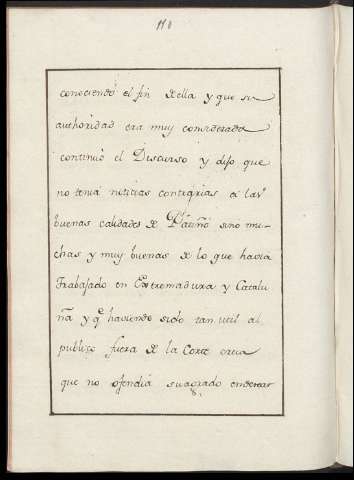 118
conociendo el fin de ella y que su
authoridad era muy considerada
continuò el Discurso y dijo que
no tenia noticias contrarias a las
buenas calidades de Patiño sino mu-
chas y muy buenas de lo que havia
trabajado en Extremadura y Catalu-
ña y q.e haviendo sido tan util al
publico fuera de la Corte creia
que no ofendia su agrado en decear